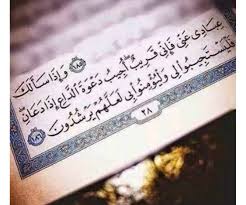 ﴿١٨٥﴾ وَإِذَا سَأَلَكَ
عِبَادِى عَنِّى فَإِنِّى قَرِيبٌ أُجِيبُ دَعْوَةَ ٱلدَّاعِ إِذَا دَعَانِ
فَلْيَسْتَجِيبُوا۟ لِى وَلْيُؤْمِنُوا۟ بِى لَعَلَّهُمْ يَرْشُدُونَ ﴿١٨٦﴾
٢٨